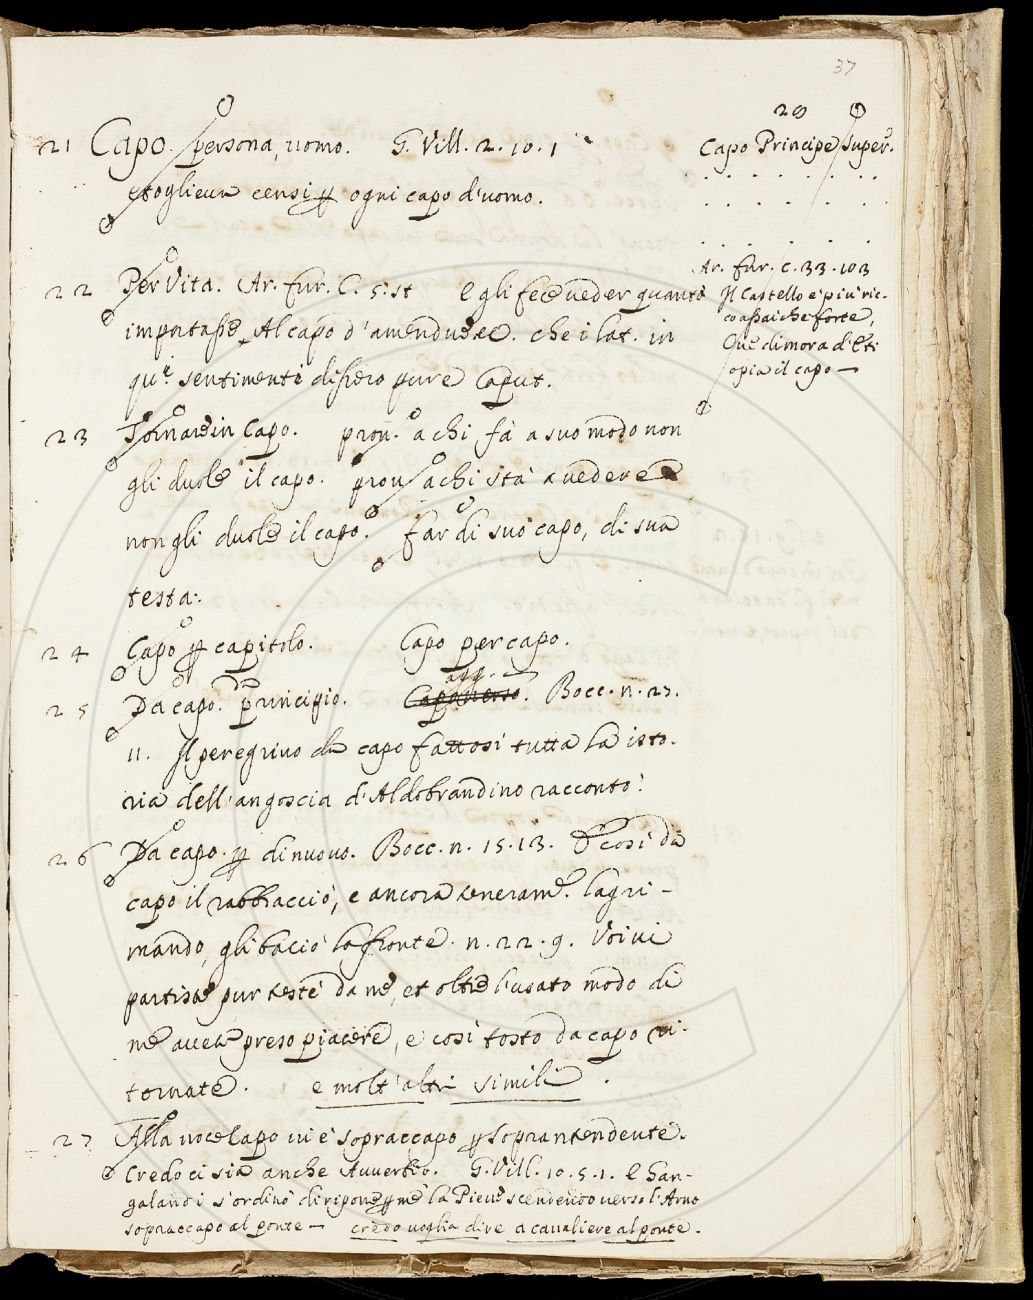 37
21 Capo. persona, uomo. G. Vill. 2. 10. 1
e toglieva censi ogni capo d'uomo.
22 Per Vita. Ar. fur. C. 5. st e gli fece veder quanto
importasse Al capo d'amendue. che i lat. in
sentimento dissero pure Caput.
23 Tornare in Capo. prov. a chi fà a suo modo non
gli duole il capo. prov. a chi stà a vedere
non gli duole il capo. Far di suo capo, di sua
testa.
24 Capo capitolo. Capo per capo.
agg.
25 Da capo. principio. Capoverso. Bocc. n. 27.
11. Il peregrino da capo fattosi tutta la isto-
ria dell'angoscia d'Aldobrandino raccontò.
26 Da capo. di nuovo. Bocc. n. 15. 13. E così da
capo il rabbracciò, e ancora teneram. lagri-
mando, gli baciò la fronte. n. 22. 9. Voi vi
partiste pur testè da me, et oltre l'usato modo di
me avete preso piacere, e così tosto da capo ri-
tornate. e molt'altri simili.
27 Alla voce Capo vi è sopraccapo soprantendente.
Credo ci sia anche Avverbio. G. Vill. 10. 5. 1. E San-
galandi s'ordinò di riporre la Pieve scendendo verso l'Arno
sopraccapo al ponte — credo voglia dire a cavaliere al ponte.
Capo Principe super.
Ar. fur. c. 33. 103
Il Castello è più ric-
co assai che forte,
Ove dimora d'Eti-
opia il capo —